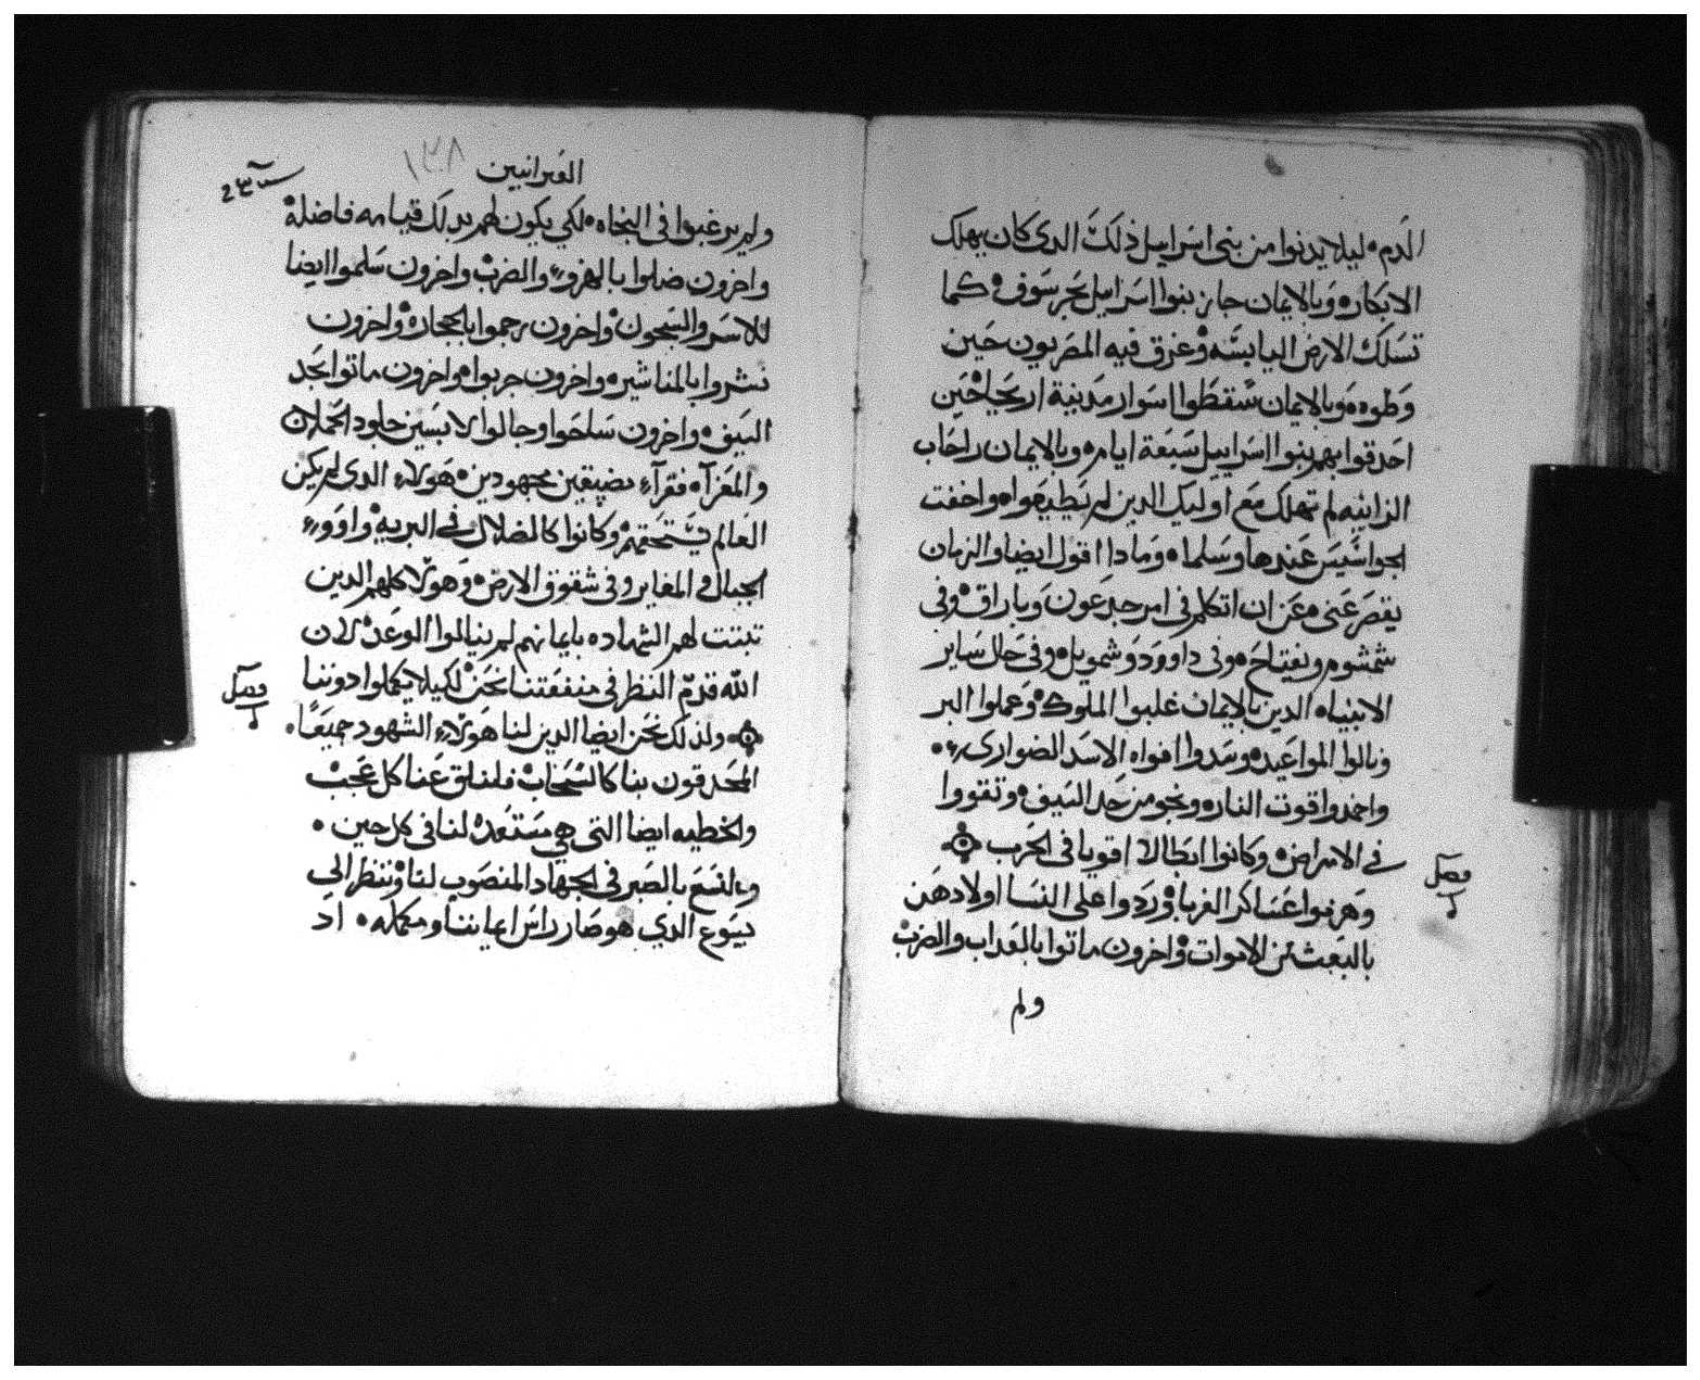 الدم ليلا يدنوا من بنى اسراييل ذلك الدى كان يهلك
الابكار وبالايمان جاز بنوا اسراييل بحر سوف كما
تسلك الارض اليابسه وغرق فيه المصريون حين
وطوه وبالايمان سقطوا اسوار مدينة اريحيا حين
احدقوا بهم بنوا اسراييل سبعة ايام وبالايمان راحاب
الزانيه لم تهلك مع اوليك الدين لم يطيعوا واخفت
الجواسيس عندها وسلما وما دا اقول ايضا والزمان
يقصر عنى عن ان اتكلم فى امر جدعون وباراق وفى
شمشوم ويفتاح وفى داوود وشمويل وفى حال ساير
الانبياء الدين بالايمان غلبوا الملوك وعملوا البر
ونالوا المواعيد وسدوا افواه الاسد الضوارى
واخمدوا قوت النار ونجو من حد السيف وتقووا
فى الامراض وكانوا ابطالا اقويا فى الحرب
فصل
وهزموا عساكر الغربا وردوا على النسا اولادهن
بالبعث من الاموات واخرون ماتوا بالعداب والضرب
ولم
العبرانيين ١٣٨
ولم يرغبوا فى النجاه لكي يكون لهم بدلك قيامه فاضلة
واخرون ضلوا بالهزو والضرب واخرون سلموا ايضا
للاسر والسجون واخرون رجموا بالحجاره واخرون
نشروا بالمناشير واخرون جربوا واخرون ماتوا بحد
السيف واخرون ساحوا وجالوا لابسين جلود الحملان
والمعزاء فقراء مضيقين مجهودين هولاء الدى لم يكن
العالم يستحقهم وكانوا كالضلال فى البريه واوو
الجبال وفى المغاير وفى شقوق الارض وهولا كلهم الدين
تبتت لهم الشهاده بايمانهم لم ينالوا الوعد لان
الله قدم النظر فى منفعتنا نحن لكيلا يكملوا دوننا
فصل
ولذلك نحن ايضا الدين لنا هولاء الشهود جميعا
المحدقون بنا كالسحاب فلنلق عنا كل عجب
والخطيه ايضا التى هي مستعده لنا فى كل حين
ولنسع بالصبر فى الجهاد المنصوب لنا وننظر الى
يسوع الدي هو صار راس ايماننا ومكمله اد